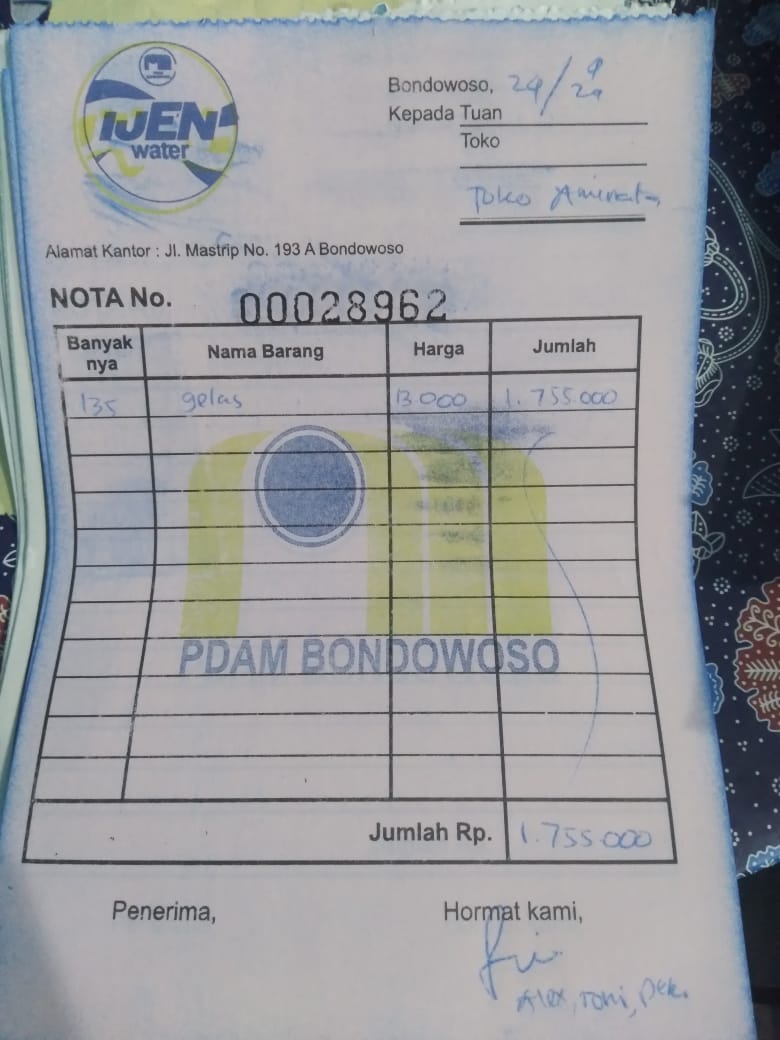 IJEN
water
Bondowoso, 24/9
24
Kepada Tuan
Toko
Toko
Alamat Kantor : Jl. Mastrip No. 193 A Bondowoso
NOTA No. 00028962
Banyak nya Nama Barang Harga Jumlah
135 gelas 13.000 1.755.000
PDAM BONDOWOSO
Jumlah Rp. 1.755.000
Penerima, Hormat kami,
Alex, Toni,